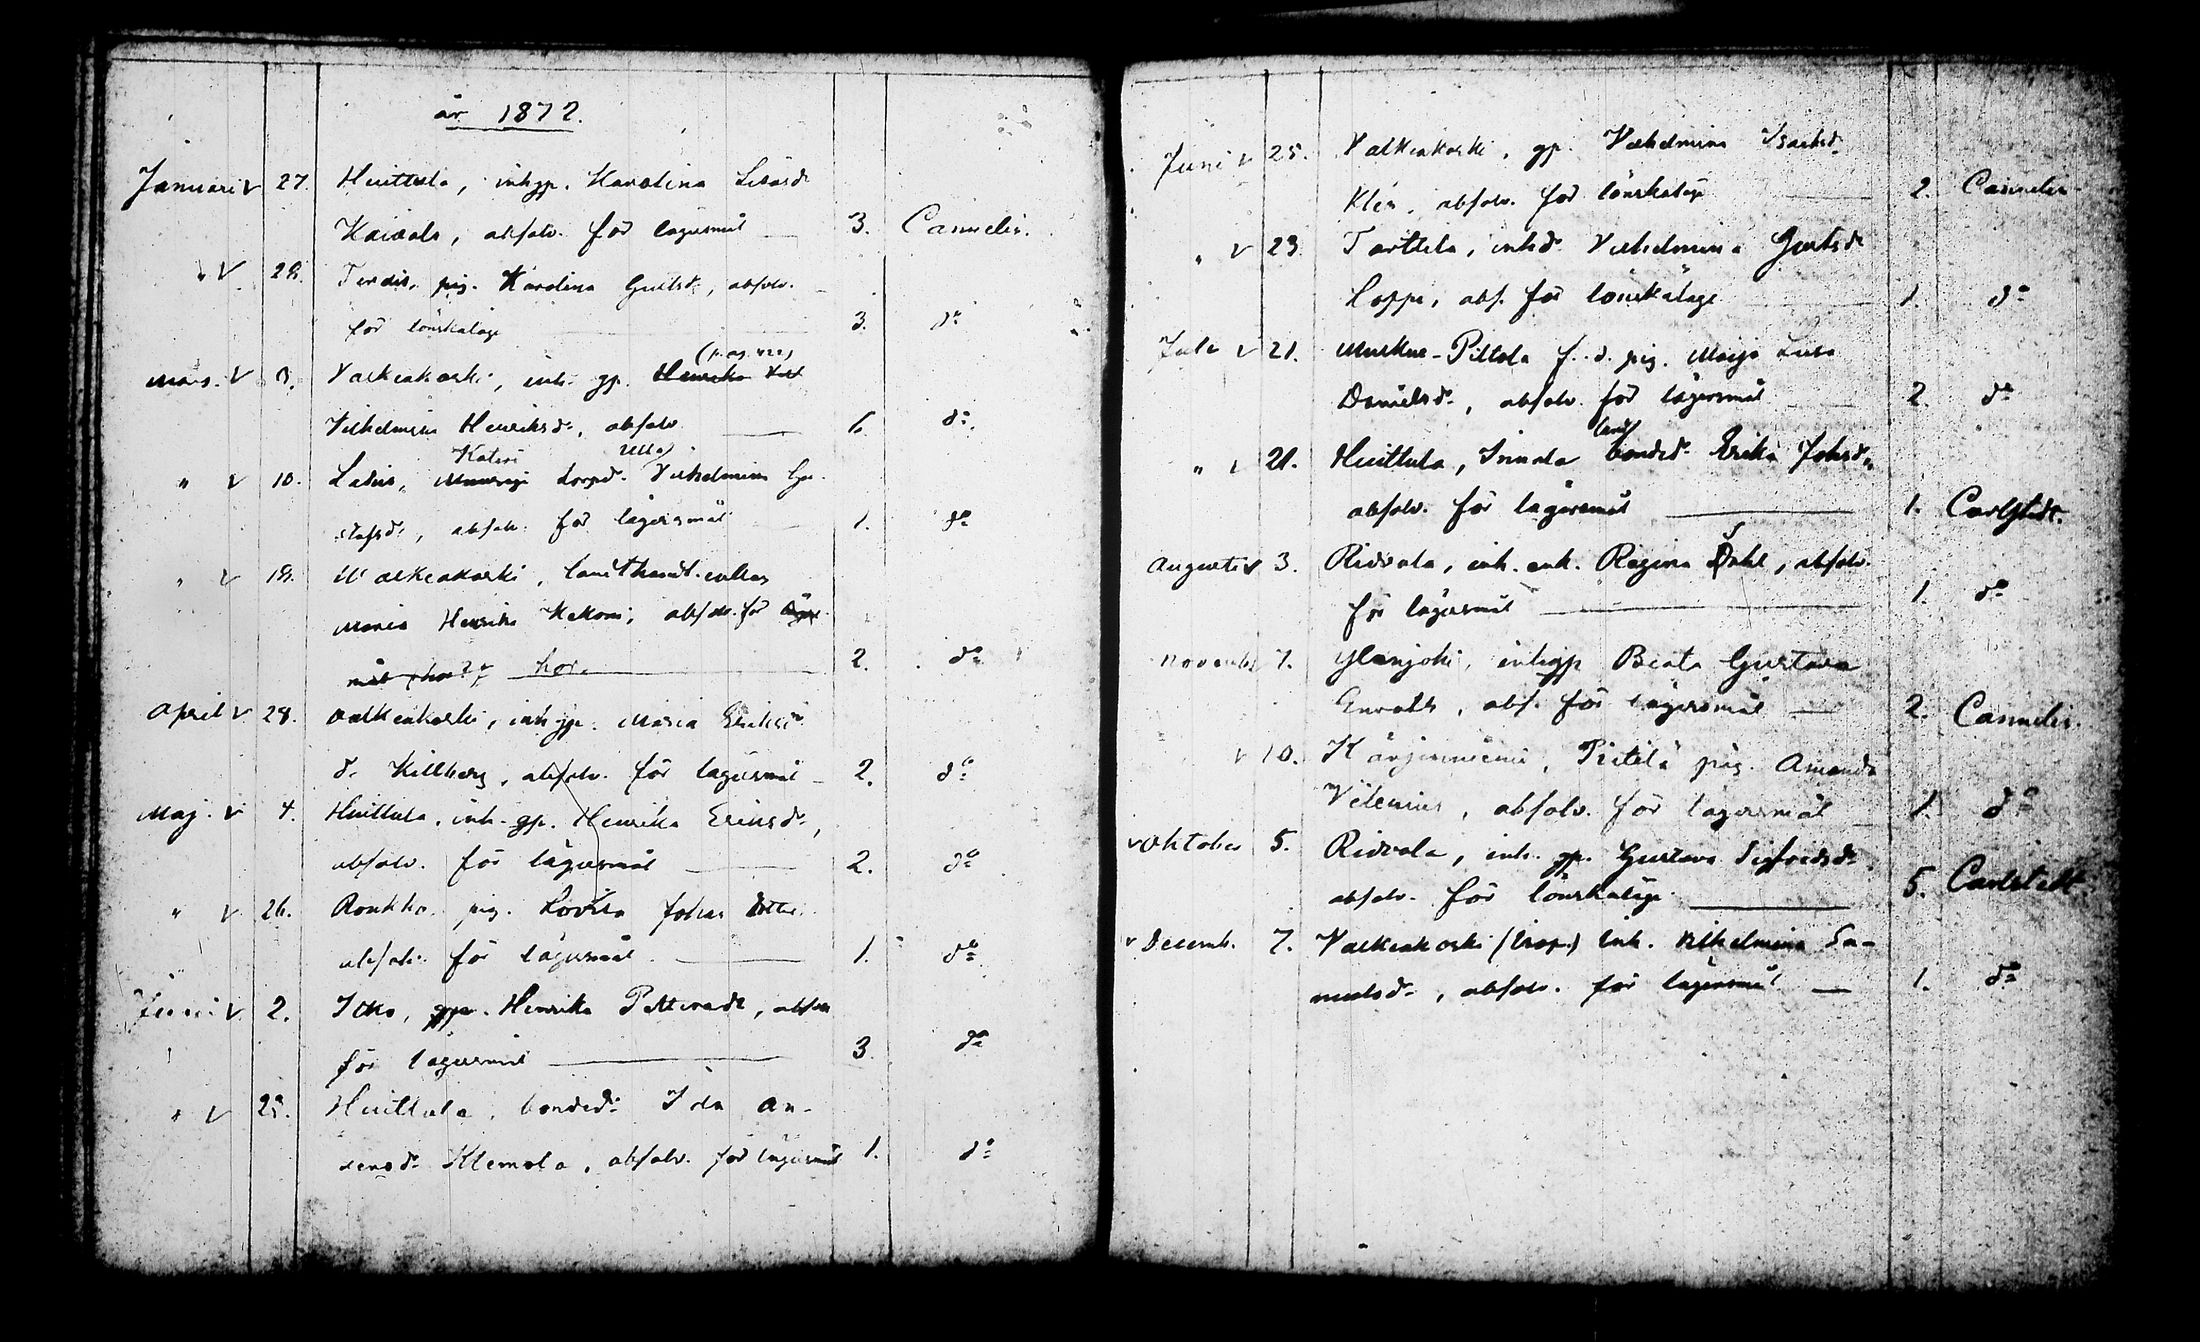 år 1872.
Januari v 27. Huittula, inhgp. Karolina
Kaivola, absolv. för lägersmål — 3. Cannelin.
" v 28. pig. Karolina Gustsdr, absolv.
för lönskaläge 3. do
(pag. 422)
Mars. v 3. Valkeakoski, inh. gp. Henrika
Vilhelmina Henriksdr, absolv. — 6. do
Kaisa Ulla
" v 10. torpd. Vilhelmina Gu-
stafsdr, absolv. för lägersmål — 1. do
" v 18. Walkeakoski, enkan
Maria Henrika absolv. för
mål hor. — 2. do
April v 28. Valkeakoski, inh gp. Maria Eriks
d. Killberg, absolv. för lägersmål — 2. do
Maj. v 4. Huittula, inh. gp. Henrika Eriksdr,
absolv. för lägersmål — 2. do
" v 26. Roukko pig. Lovisa Johans dotter
absolv. för lägersmål — 1. do
Juni v 2. gp. Henrika Pettersdr, absolv
för lägersmål — 3. do
" v 25. Huittula, bonded. Ida An-
dersdr Klemola, absolv. för lägersmål 1. do
Juni v 25. Valkeakoski, gp. Vilhelmina Isaksdr
Klén, absolv. för lönskaläge — 2. Cannelin
" v 23. Tarttila, inhd. Vilhelmina Gustsdr
Loppi, abs. för lönskaläge — 1. do
Juli v 21. Pittola f. d. pig. Maija Lisa
Danielsdr, absolv. för lägersmål — 2. do
land
" v 21. Huittula, bonded. Erika Johsdr,
absolv. för lägersmål — 1. Carlstedt.
Augusti v 3. Ridvala, inh. enk. Regina Dahl, absolv.
för lägersmål — 1. do
November 7. Ylenjoki, inhgp Beata Gustava
Enroth, abs. för lägersmål — 2. Cannelin.
v 10. Kärjenniemi, Pietilä pig. Amanda
Vilenius, absolv. för lägersmål — 1. do
v Oktober 5. Ridvala, inh. gp. Gustava Sigfredsdr,
absolv. för lönskaläge — 5. Carlstedt
v Decemb. 7. Valkeakoski inh. Vilhelmina Sa-
muelsdr, absolv. för lägersmål — 1. do